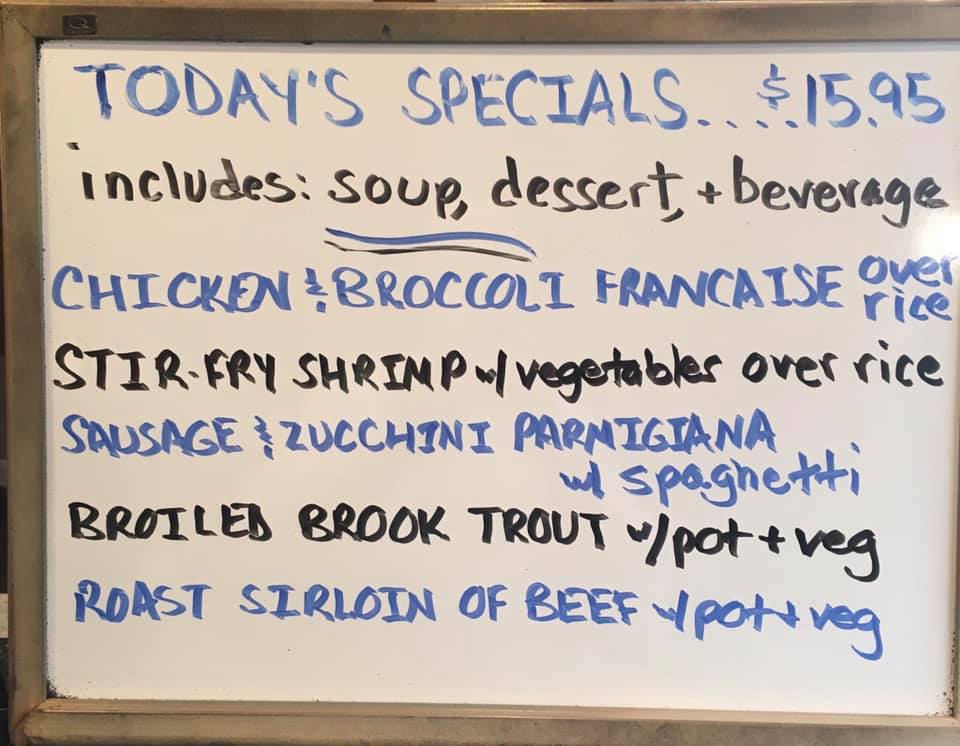 TODAY'S SPECIALS....$15.95
includes: soup, dessert, + beverage
CHICKEN & BROCCOLI FRANCAISE over rice
STIR-FRY SHRIMP w/ vegetables over rice
SAUSAGE & ZUCCHINI PARMIGIANA
w/ spaghetti
BROILED BROOK TROUT w/pot + veg
ROAST SIRLOIN OF BEEF w/pot + veg